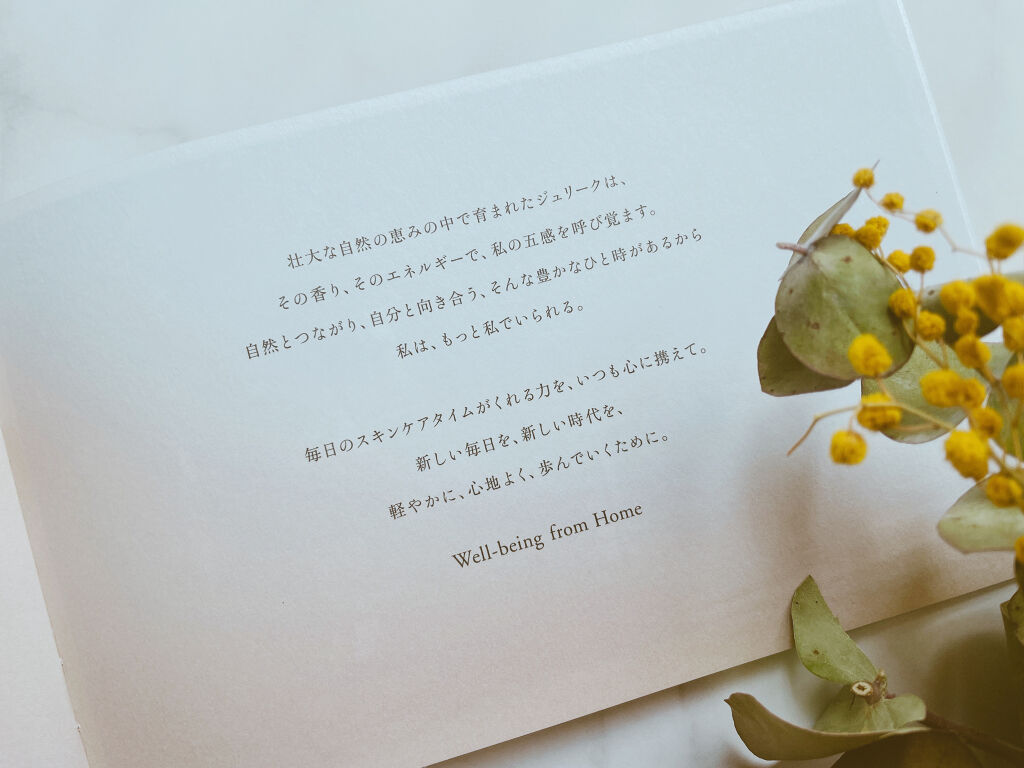 壮大な自然の恵みの中で育まれたジュリークは、
その香り、そのエネルギーで、私の五感を呼び覚ます。
自然とつながり、自分と向き合う、そんな豊かなひと時があるから
私は、もっと私でいられる。
毎日のスキンケアタイムがくれる力を、いつも心に携えて。
新しい毎日を、新しい時代を、
軽やかに、心地よく、歩んでいくために。
Well-being from Home